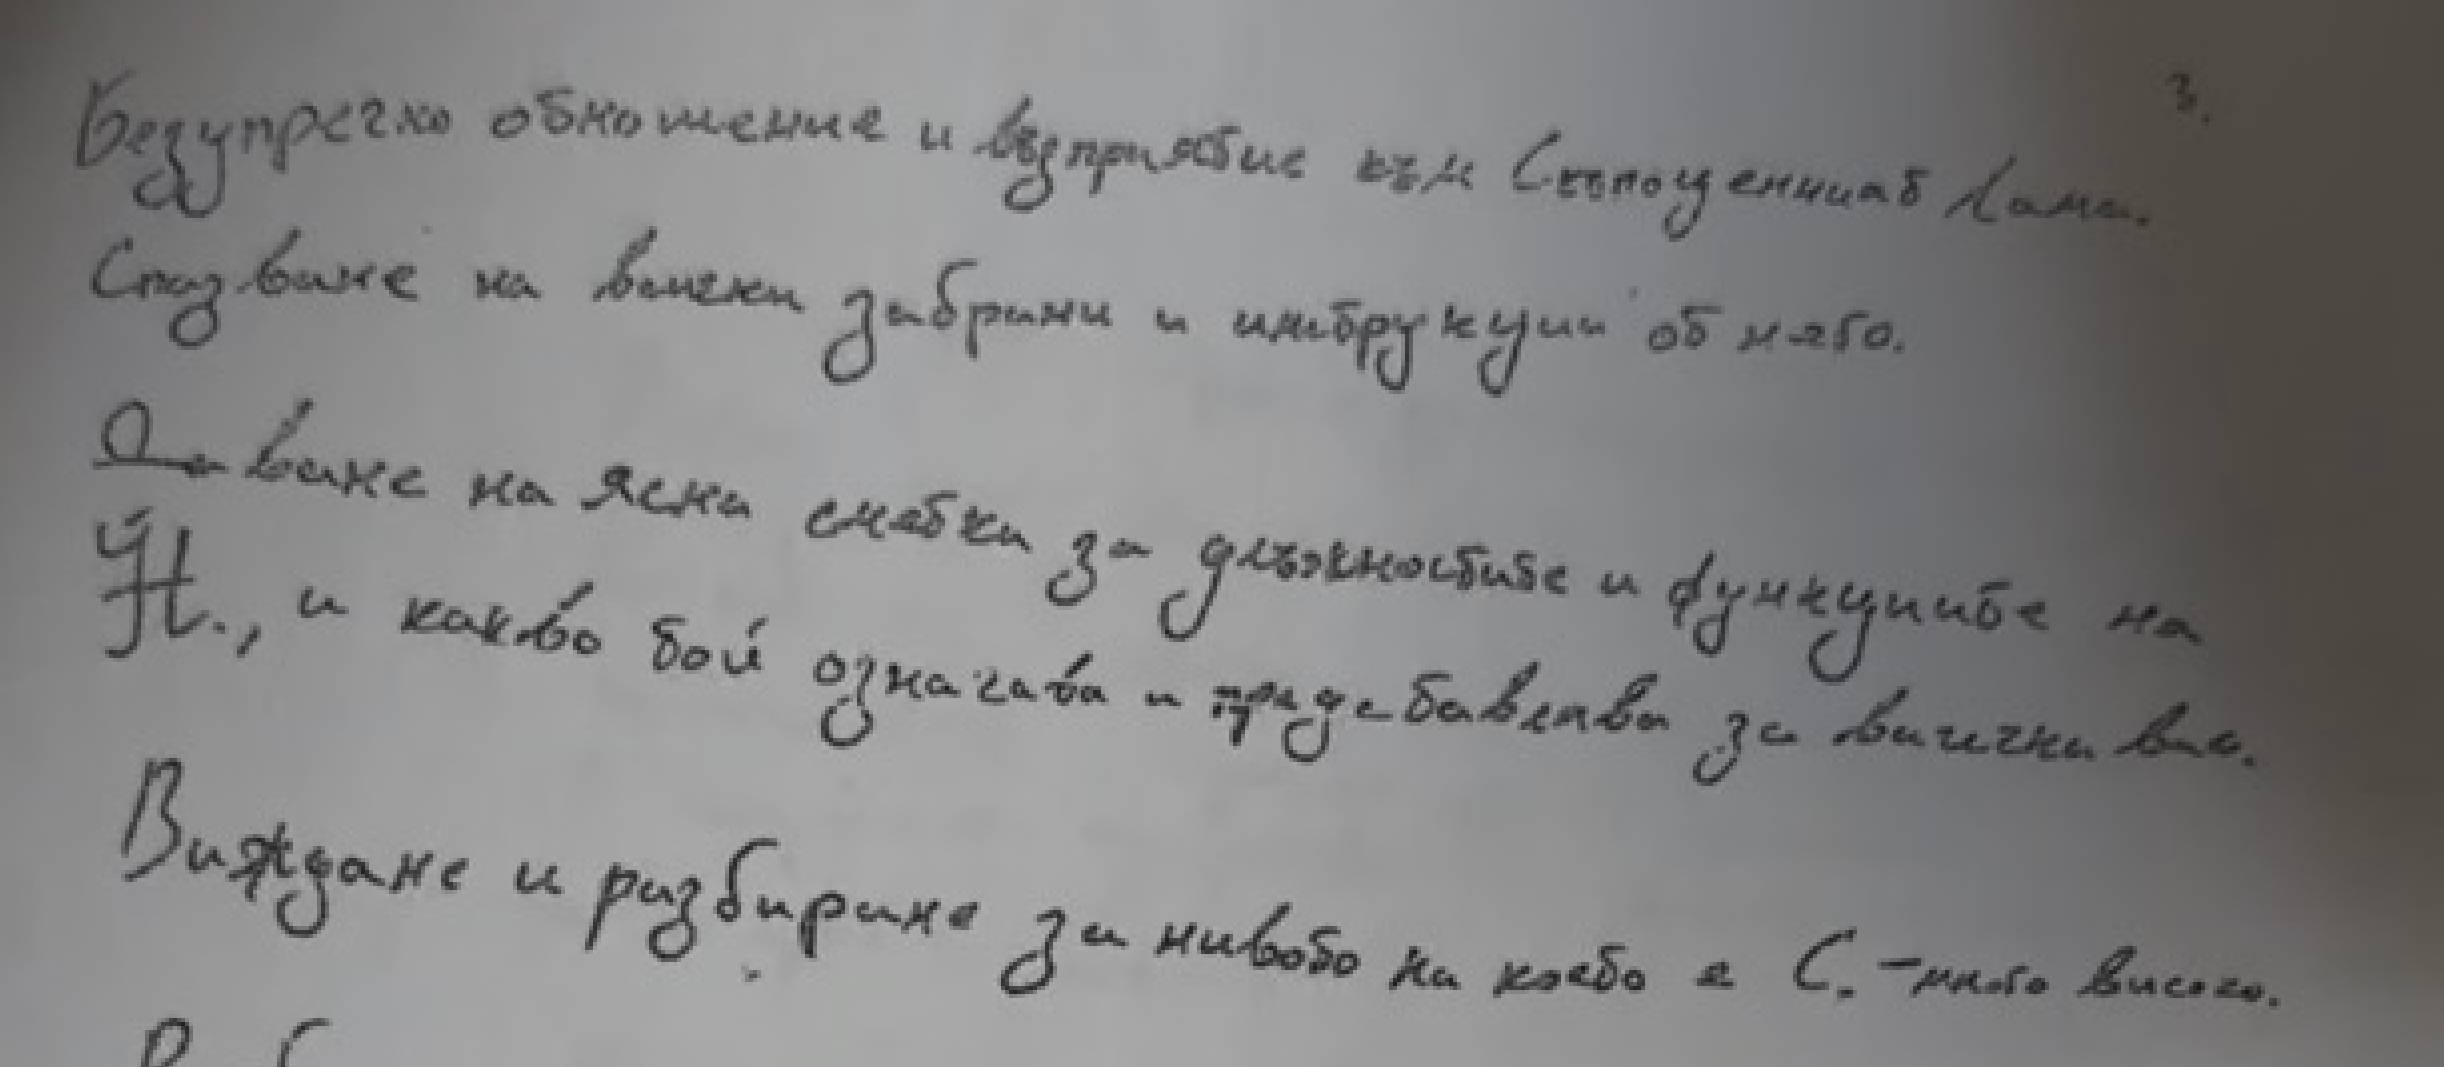 3.
Безупречно отношение и възприятие към Скъпоценният Лама.
Спазване на всички забрани и инструкции от него.
Даване на ясна сметка за длъжностите и функциите на
Й.Л., и какво той означава и представлява за всички вас.
Виждане и разбиране за нивото на което е С. - много високо.